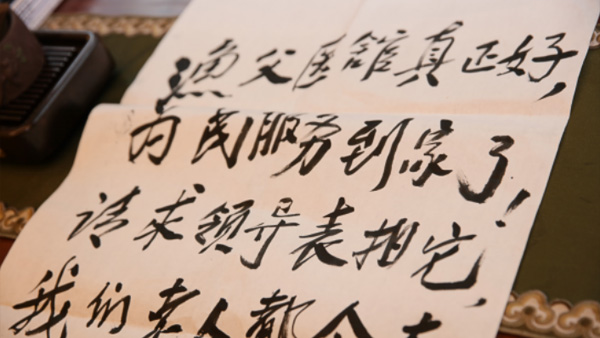 渔父医馆真正好，
为民服务到家了！
请求领导表扬它，
我们老人都